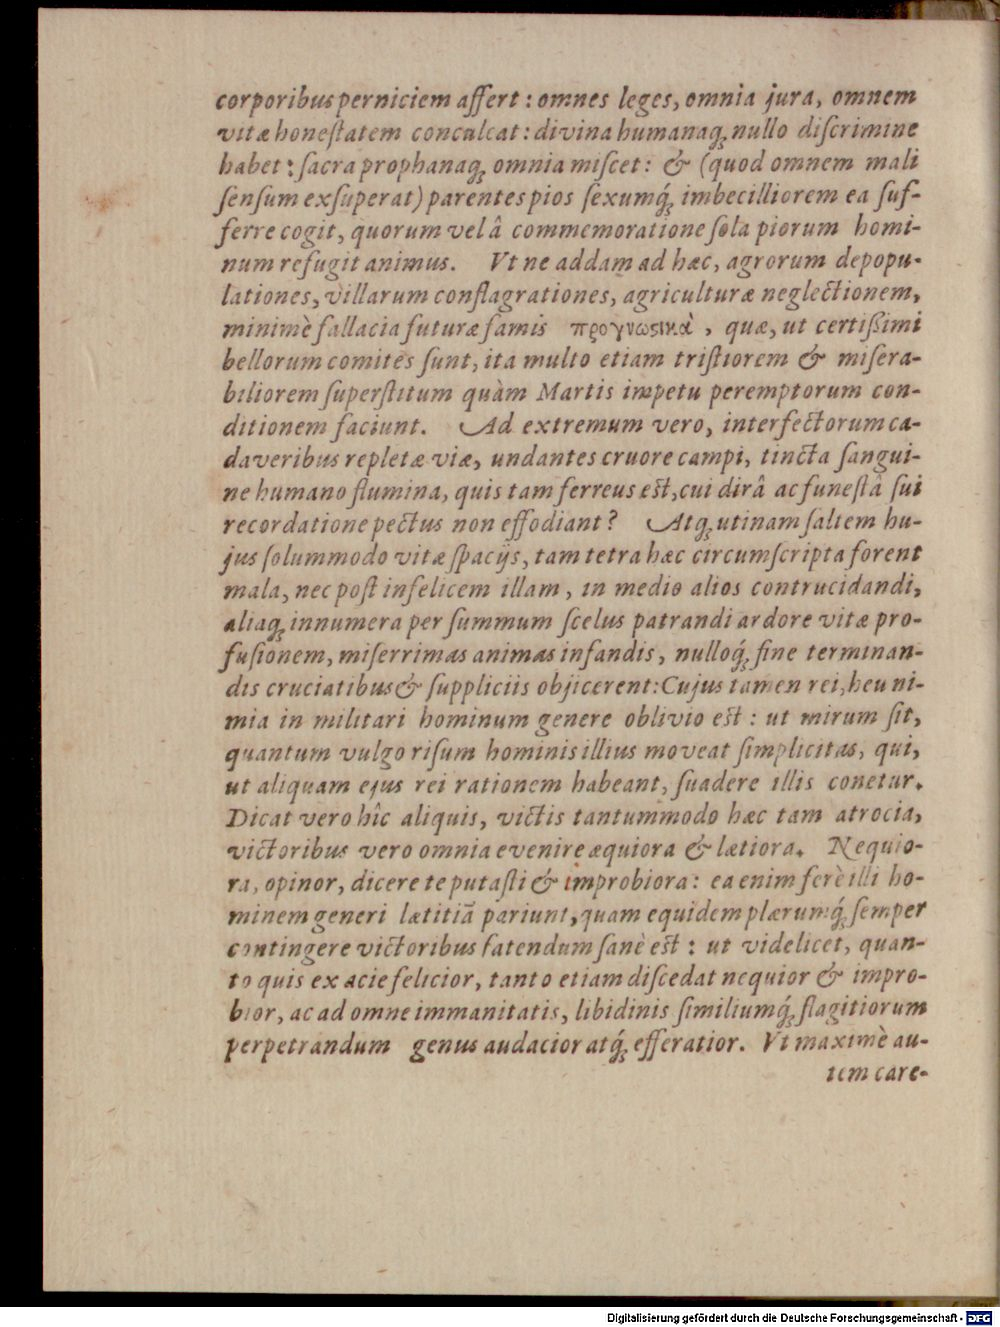 corporibus perniciem affert : omnes leges, omnia jura, omnem
vitæ honeſtatem conculcat : divina humanaq́; nullo diſcrimine
habet : ſacra prophanaq́; omnia miſcet : & (quod omnem mali
ſenſum exſuperat) parentes pios ſexumq́; imbecilliorem ea ſuf-
ferre cogit, quorum vel â commemoratione ſola piorum homi-
num refugit animus. Vt ne addam ad hæc, agrorum depopu-
lationes, villarum conflagrationes, agriculturæ neglectionem,
minimè fallacia futuræ famis προγνωςικὰ, quæ, ut certißimi
bellorum comites ſunt, ita multo etiam triſtiorem & miſera-
biliorem ſuperſtitum quàm Martis impetu peremptorum con-
ditionem faciunt. Ad extremum vero, interfectorum ca-
daveribus repletæ viæ, undantes cruore campi, tincta ſangui-
ne humano flumina, quis tam ferreus est, cui dirâ ac funeſtâ ſui
recordatione pectus non effodiant? Atq́; utinam ſaltem hu-
jus ſolummodo vitæ ſpacijs, tam tetra hæc circumſcripta forent
mala, nec poſt infelicem illam, in medio alios contrucidandi,
aliaq́; innumera per ſummum ſcelus patrandi ardore vitæ pro-
fuſionem, miſerrimas animas infandis, nulloq́; fine terminan-
dis cruciatibus & ſuppliciis objicerent : Cujus tamen rei, heu ni-
mia in militari hominum genere oblivio est : ut mirum ſit,
quantum vulgo riſum hominis illius moveat ſimplicitas, qui,
ut aliquam ejus rei rationem habeant, ſuadere illis conetur.
Dicat vero hîc aliquis, victis tantummodo hæc tam atrocia,
victoribus vero omnia evenire æquiora & lætiora. Nequio-
ra, opinor, dicere te putaſti & improbiora : ea enim ferè illi ho-
minem generi lætitiã pariunt, quam equidem plærumq́; ſemper
contingere victoribus fatendum ſanè est : ut videlicet, quan-
to quis ex acie felicior, tanto etiam diſcedat nequior & impro-
bior, ac ad omne immanitatis, libidinis ſimiliumq́; flagitiorum
perpetrandum genus audacior atq́; efferatior. Vt maximè au-
tem care-
Digitalisierung gefördert durch die Deutsche Forschungsgemeinschaft - DFG